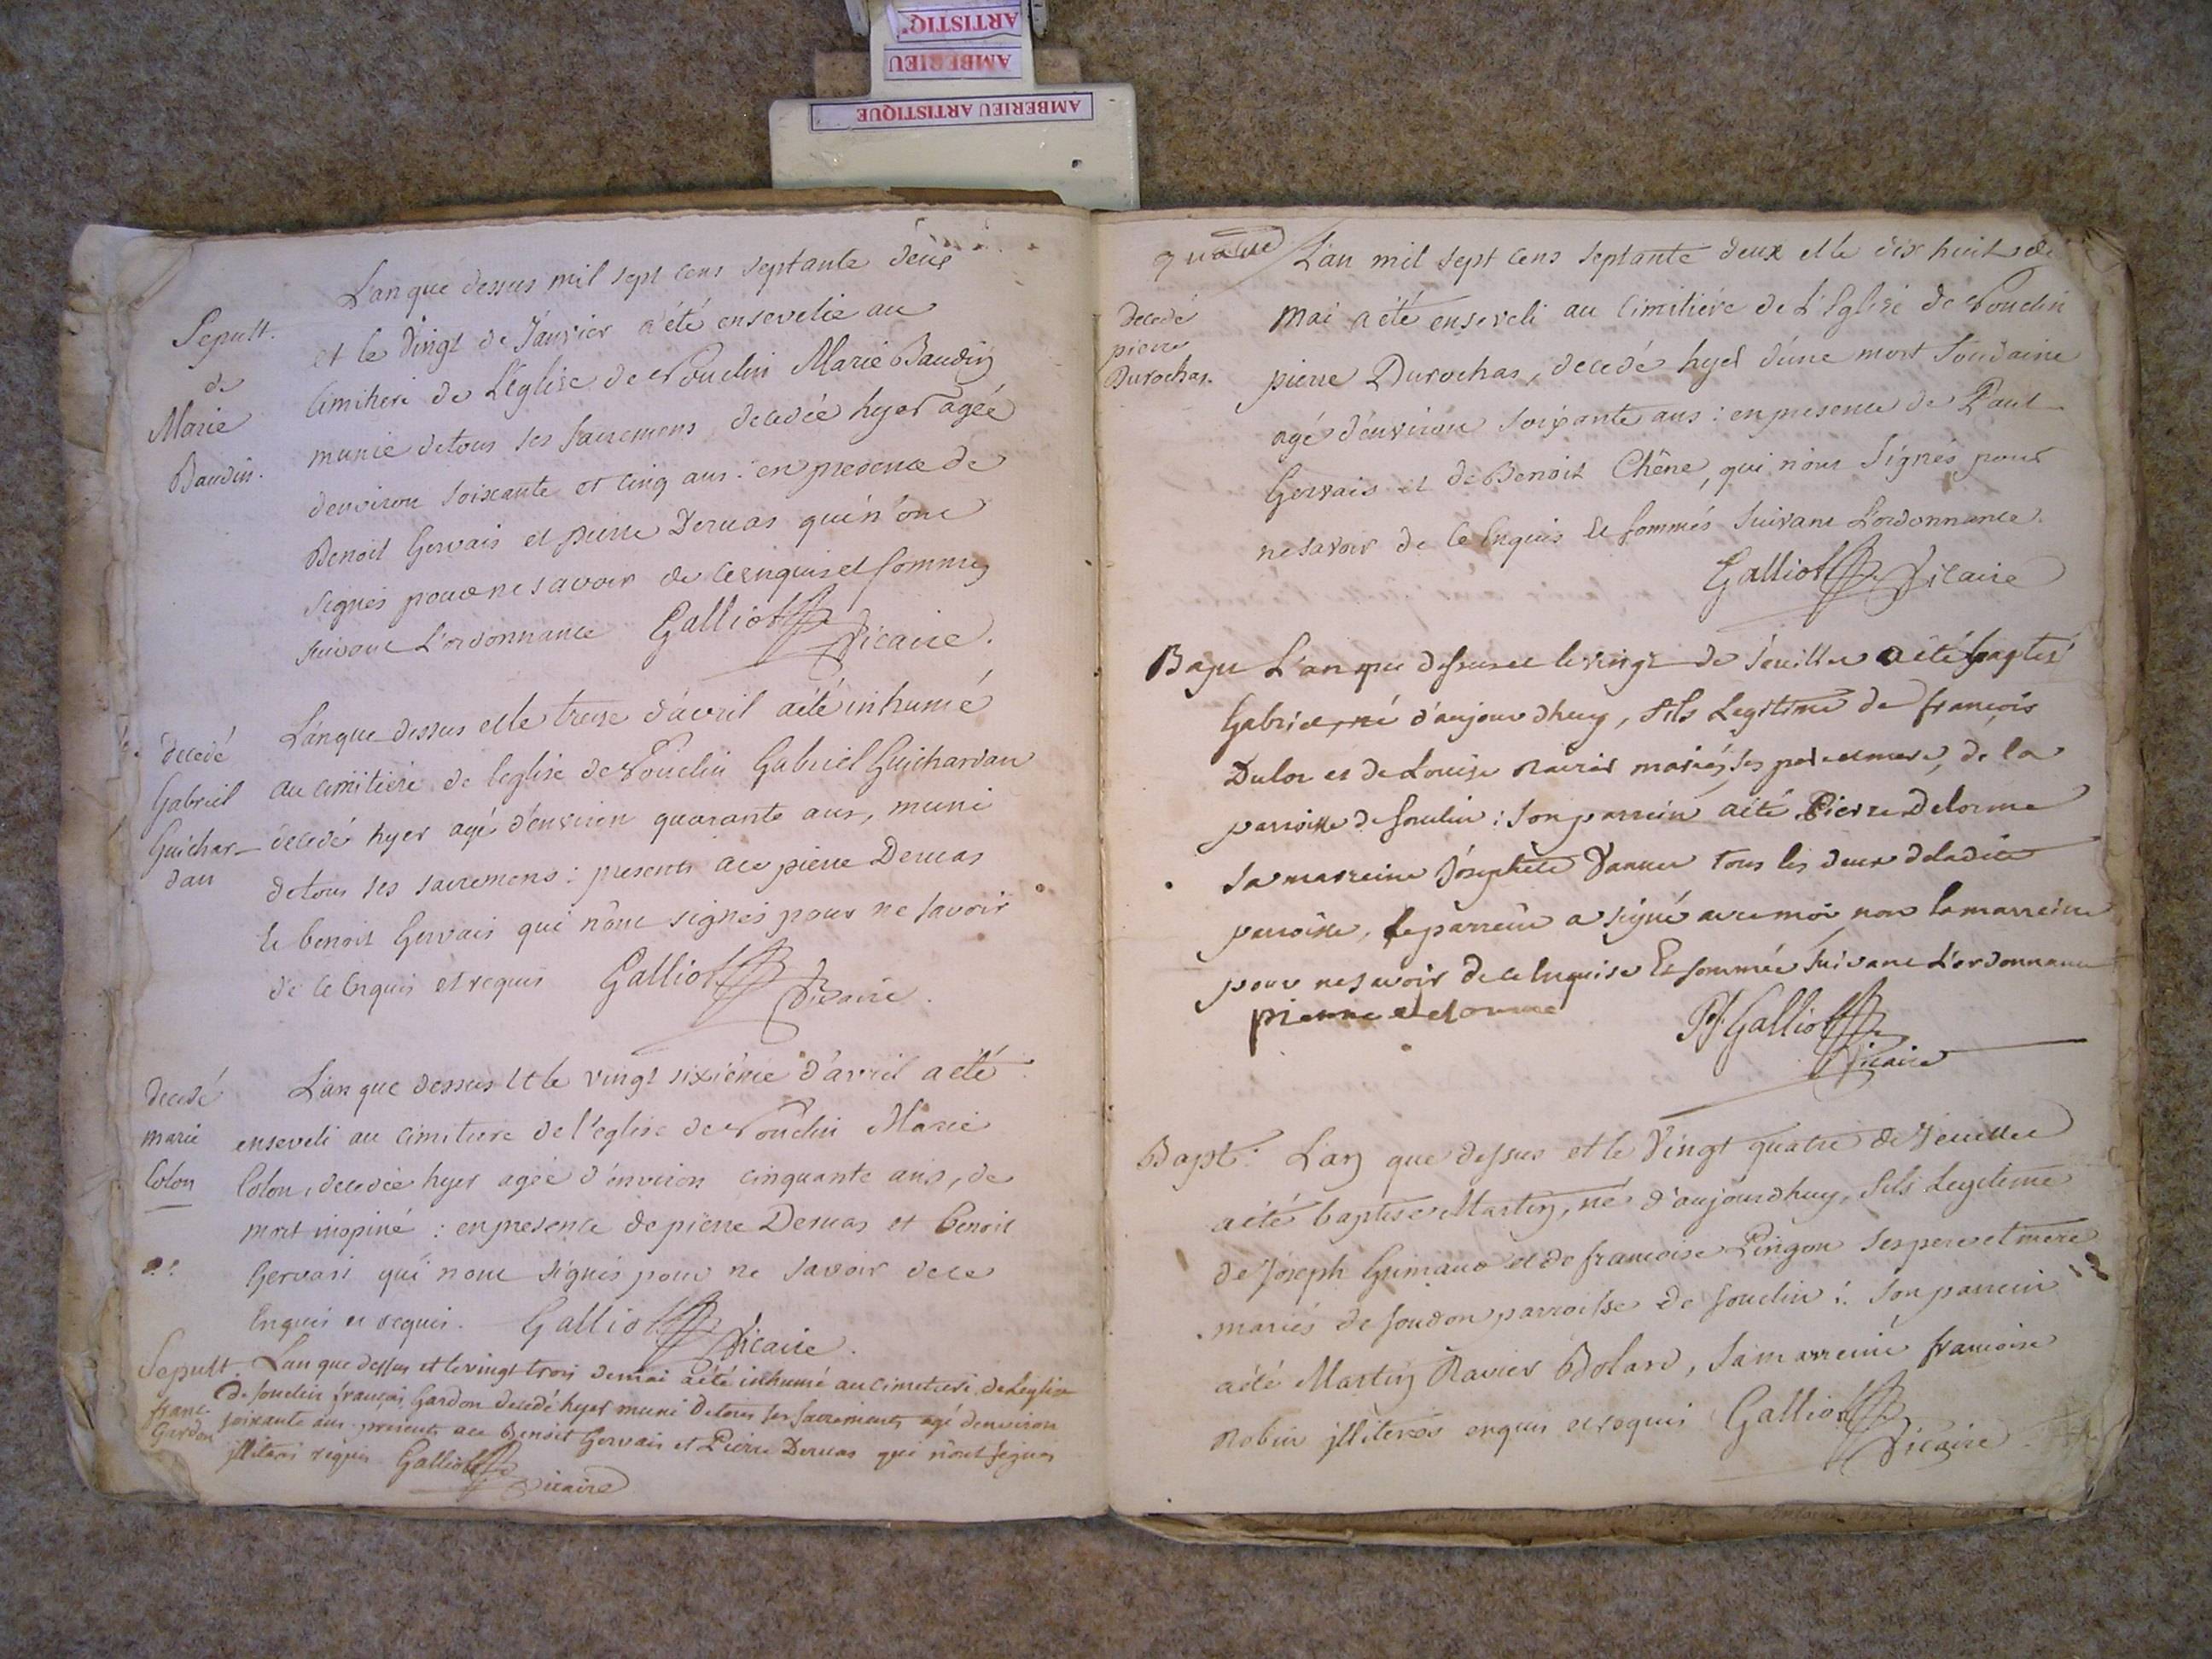 ARTISTIQ'
AMBERIEU
AMBERIEU ARTISTIQUE
L'an que dessus mil sept cens septante deux
et le vingt de Janvier a été ensevelie au
Sepult.
de
Marie
Baudin.
cimitiere de L'Eglise de Souclin Marie Baudin
munie de tous ses sacremens decedée hyer agée
denviron soixante et cinq ans: en presence de
Benoit Gervais et pierre Deruas qui n'ont
signés pour ne savoir de ce enquis et sommés
suivant L'ordonnance Galliot Vicaire.
decedé
Gabriel
Guichar-
dan
L'an que dessus et le treise d'avril a été inhumé
au cimitiere de l'eglise de Souclin Gabriel Guichardan
decedé hyer agé d'environ quarante ans, muni
de tous ses sacremens: presents a ce pierre Deruas
et benoit Gervais qui n'ont signés pour ne savoir
de ce enquis et requis Galliot Vicaire.
decedé
marie
Colon
L'an que dessus et le vingt sixième d'avril a été
enseveli au cimitiere de l'eglise de Souclin Marie
Colon, decedée hyer agée d'environ cinquante ans, de
mort inopiné: en presence de pierre Deruas et Benoit
Gervais qui n'ont signés pour ne savoir de ce
Enquis et requis. Galliot Vicaire.
Sepult.
franc.
Gardon
L'an que dessus et le vingt trois de mai a été inhumé au cimetiere de L'eglise
de Souclin françois Gardon decedé hyer muni de tous ses sacrements agé denviron
soixante ans. presents a ce Benoit Gervais et Pierre Deruas qui n'ont signés
illiterés requis Galliot Vicaire
quatre
L'an mil sept cens septante deux et le dix huit de
decedé
pierre
Durochas.
mai a été enseveli au cimitiere de L'Eglise de Souclin
pierre Durochas, decedé hyer d'une mort soudaine
agé d'environ soixante ans: en presence de Paul
Gervais et de Benoit Chêne, qui n'ont signés pour
ne savoir de ce Enquis et sommés suivant L'ordonnance.
Galliot Vicaire
Bapt L'an que dessus et le vingt de Jeuillet a été baptisé
Gabriel, né d'aujourdhuy, fils Legitime de françois
Dulon et de Louise Ravier mariés, ses pere et mere, de la
parroisse de Souclin: son parrein a été Pierre Delorme
sa marreine Josephete Vanner tous les deux deladite
parroisse, le parrein a signé avec moi non la marreine
pour ne savoir de ce Enquise Et sommée suivant L'ordonnance
pierre delorme Galliot
Vicaire
Bapt. L'an que dessus et le vingt quatre de Jeuillet
a été baptisé Martin, né d'aujourdhuy, fils Legitime
de Joseph Grimaud et de francoise Pingon ses pere et mere
mariés de Soudon parroisse de Souclin: son parrein
a été Martin Ravier Bolard, sa marreine francoise
Robin illiterés enquis et requis Galliot
Vicaire